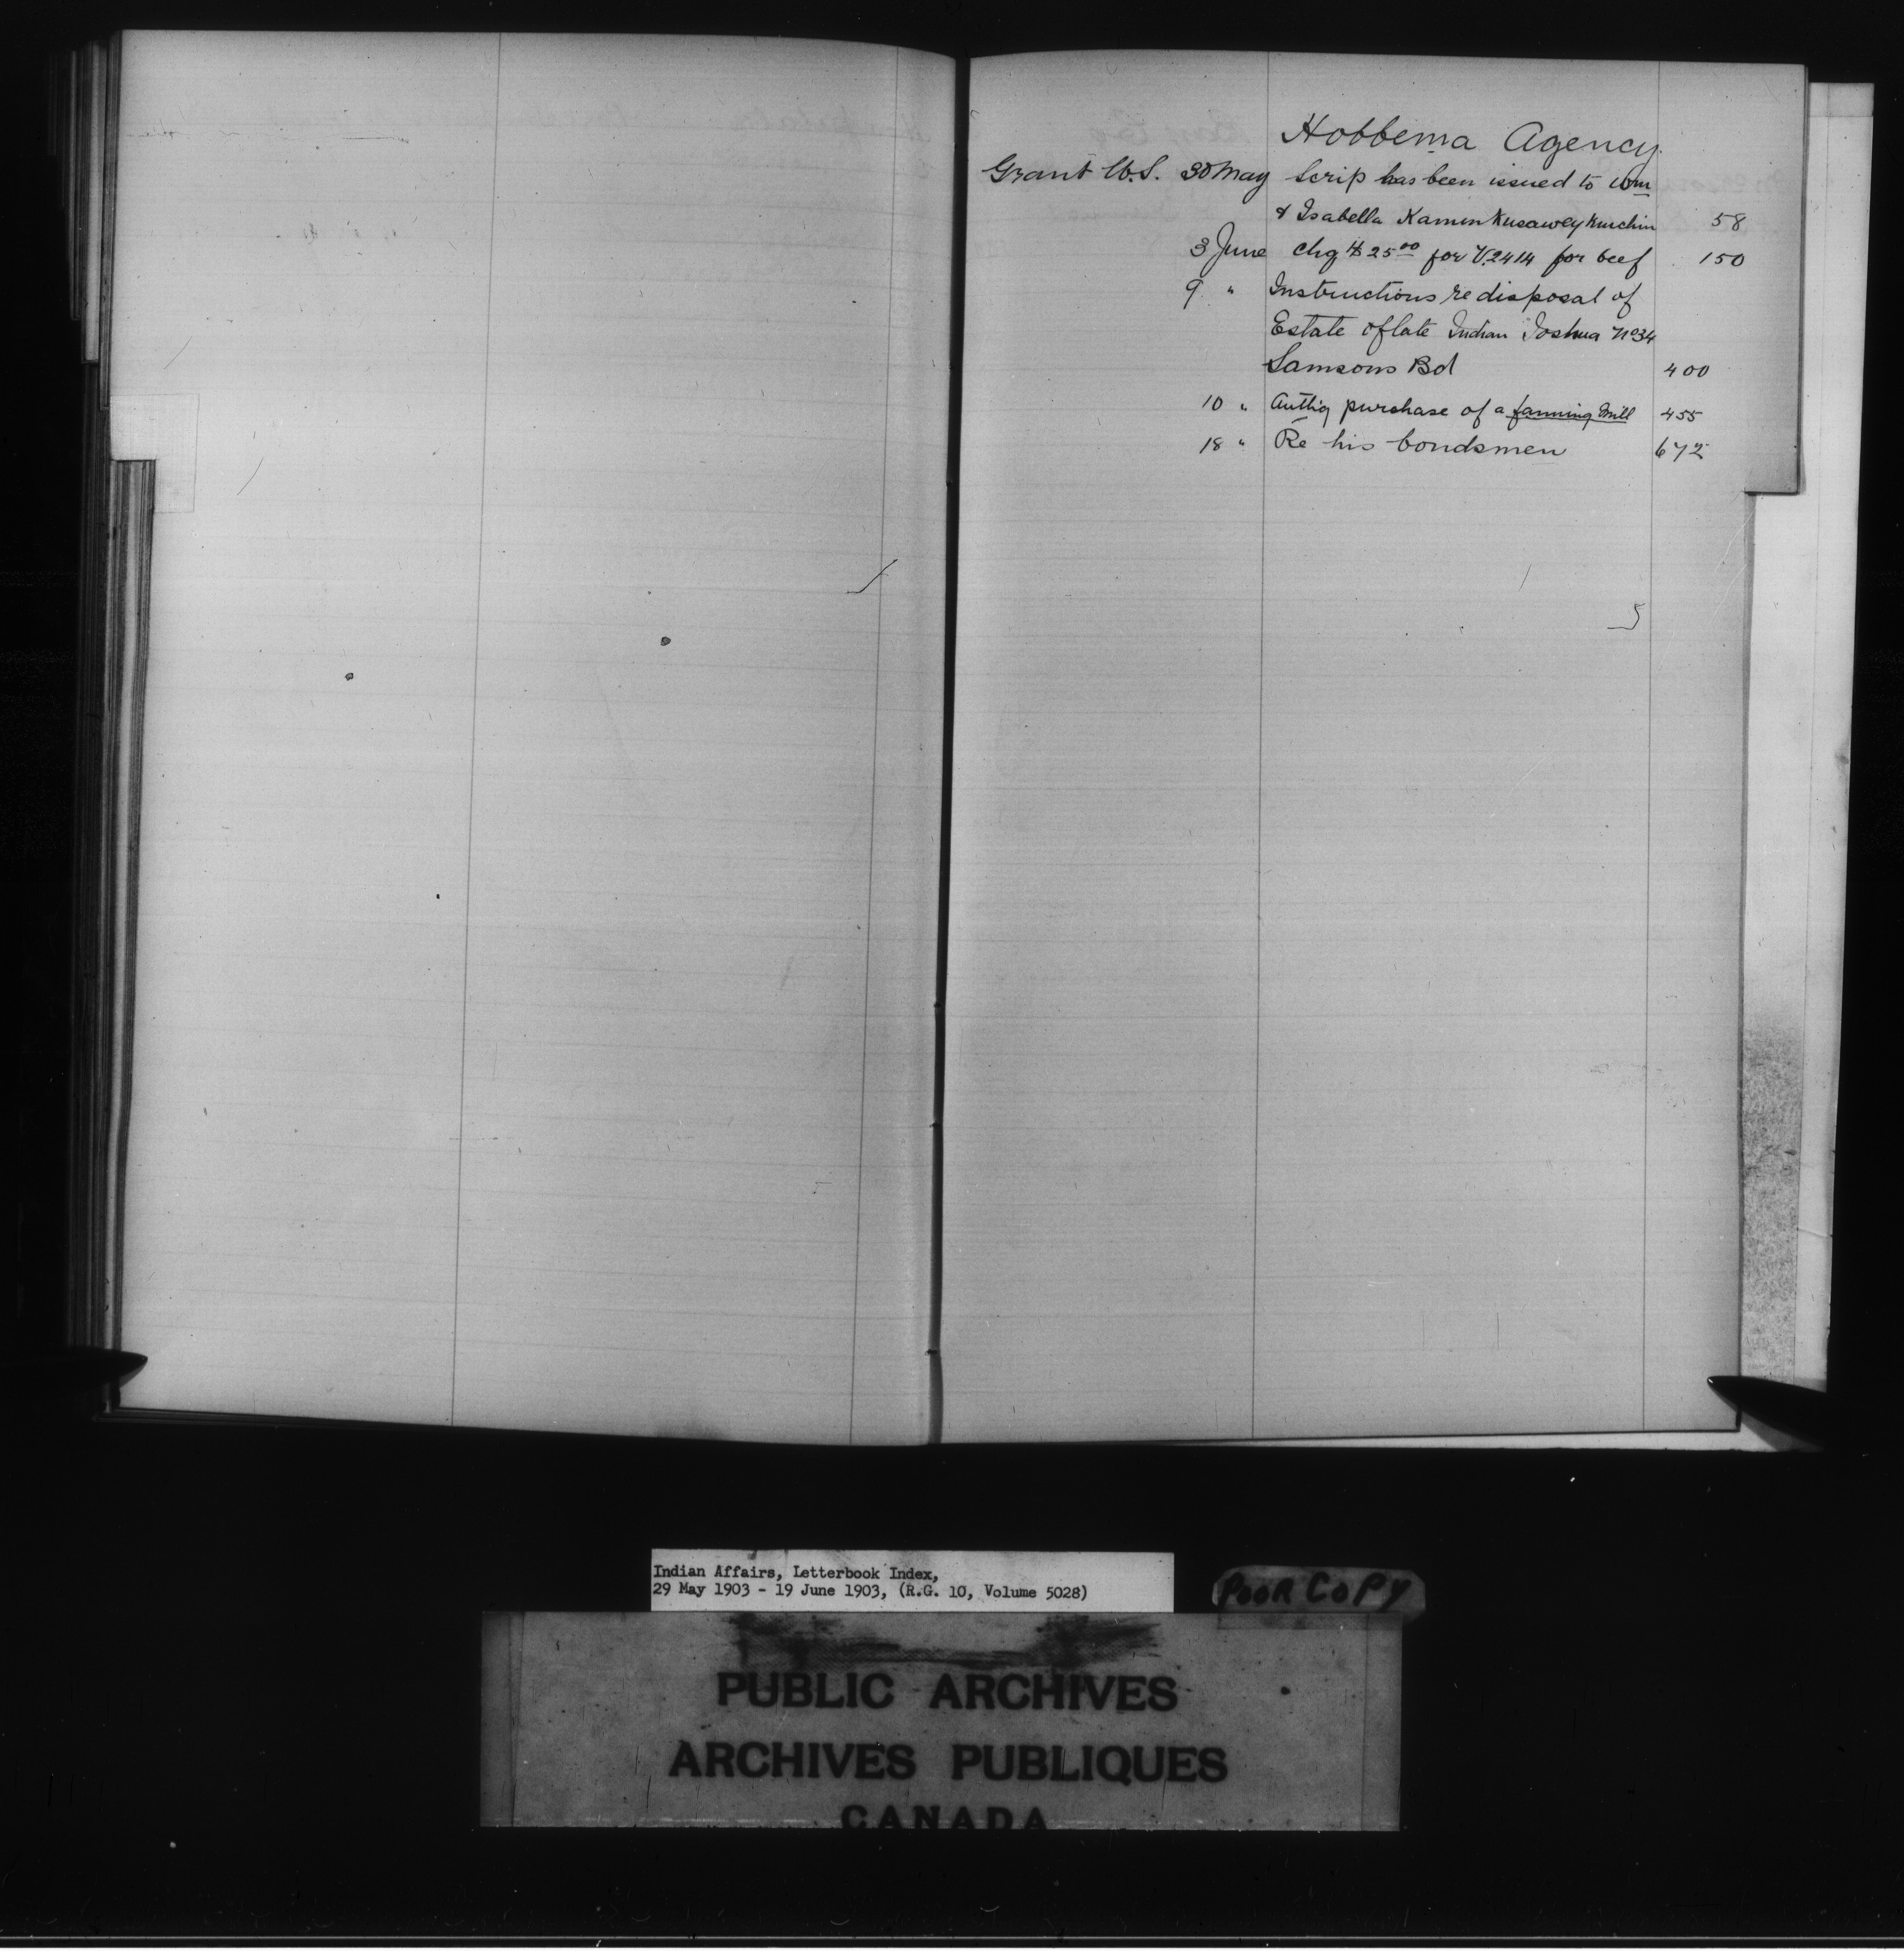 Hobbema Agency.
Grant W.S. 30 May Scrip has been issued to Wm
& Isabella Kamin Kusawey Kuschin 58
3 June Chq $25.00 for V.2414 for beef 150
9 " Instructions re disposal of
Estate of late Indian Joshua No 34
Samsons Bd 400
10 " Authig purchase of a fanning mill 455
18 " Re his bondsmen 672
Indian Affairs, Letterbook Index,
29 May 1903 - 19 June 1903, (R.G. 10, Volume 5028)
POOR COPY
PUBLIC ARCHIVES
ARCHIVES PUBLIQUES
CANADA